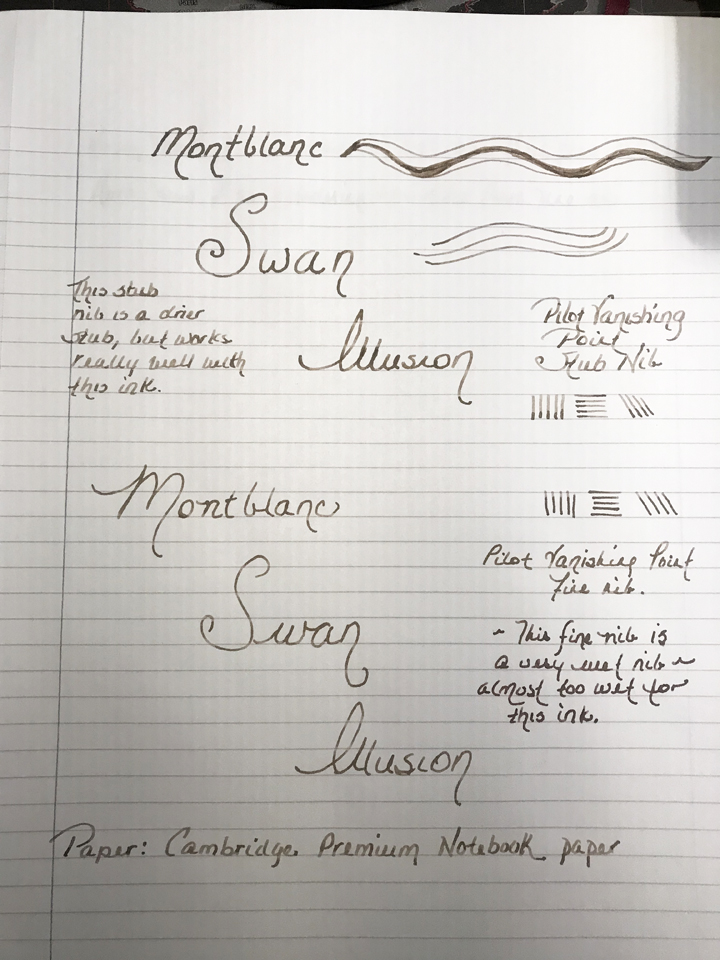 Montblanc
Swan
This stub
nib is a drier
stub, but works
really well with
this ink.
Illusion
Pilot Vanishing
Point
Stub Nib
Montblanc
Swan
Illusion
Pilot Vanishing Point
Fine nib.
~ This fine nib is
a very wet nib ~
almost too wet for
this ink.
Paper: Cambridge Premium Notebook paper